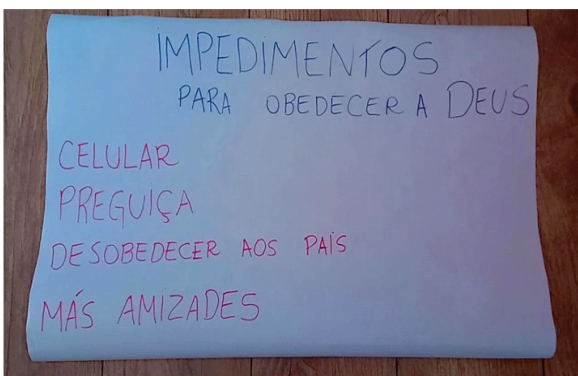 IMPEDIMENTOS
PARA OBEDECER A DEUS
CELULAR
PREGUIÇA
DESOBEDECER AOS PAIS
MÁS AMIZADES